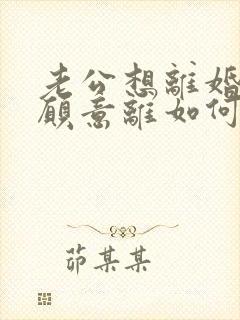 老公想離婚
願意離如何
茆某某